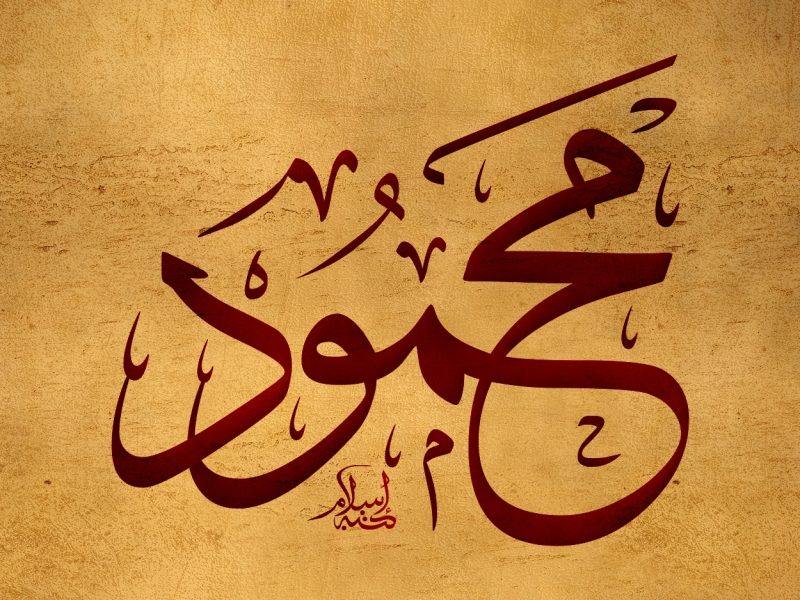 محمود
كتبه إسلام